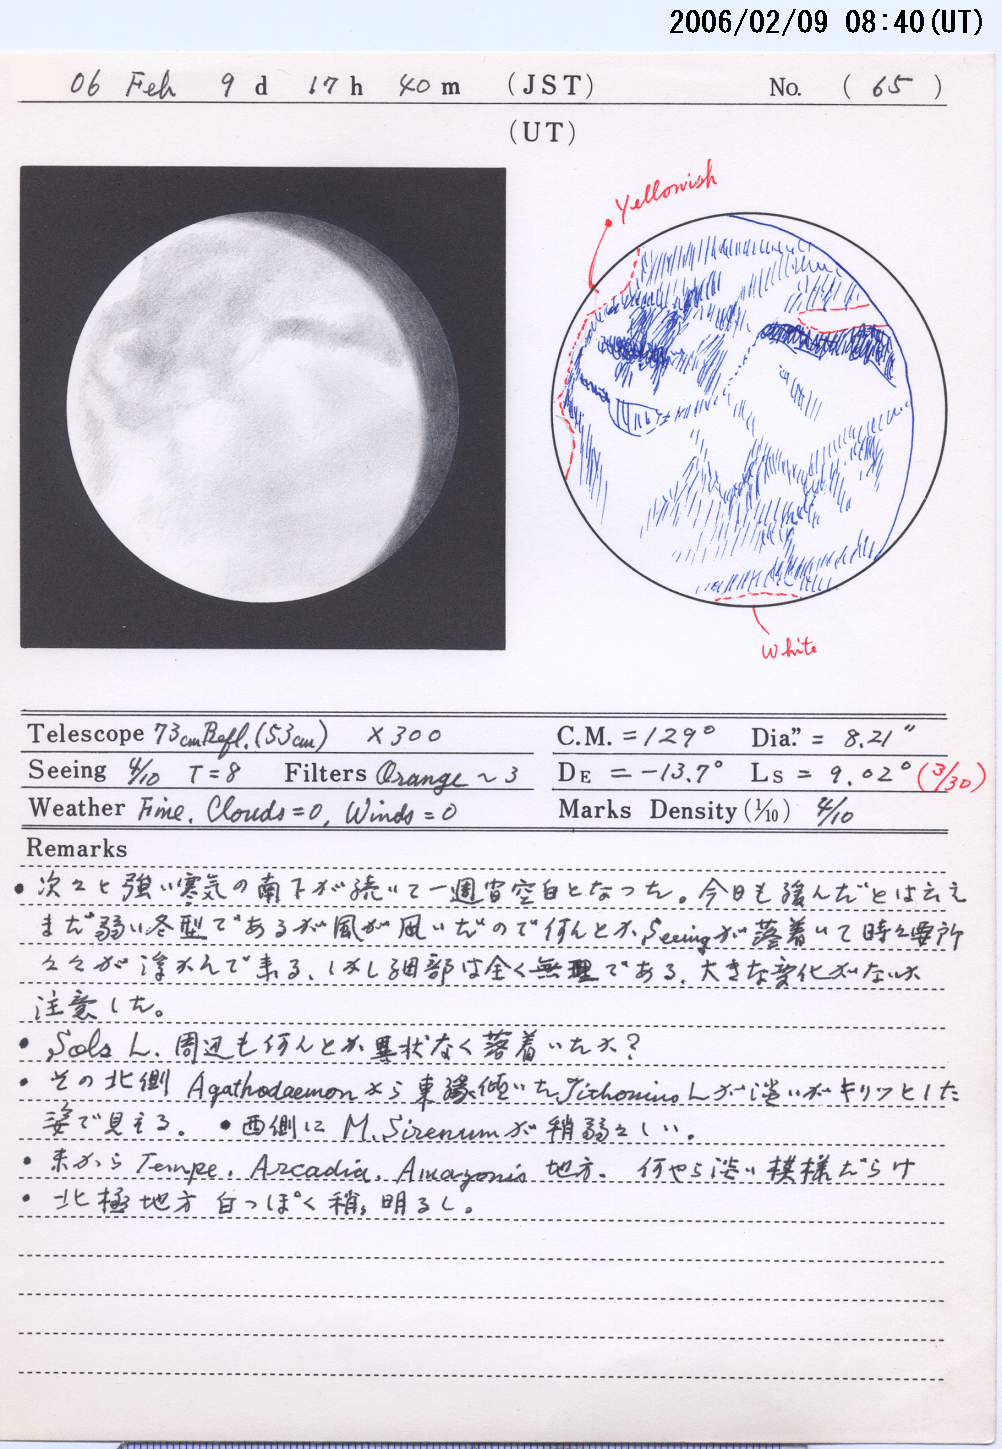 2006/02/09 08:40(UT)
06 Feb 9 d 17 h 40 m (JST) No. ( 65 )
(UT)
Yellowish
White
Telescope 73cm Refl. (53cm) ×300 C.M. = 129° Dia." = 8.21"
Seeing 4/10 T=8 Filters Orange ~3 DE = -13.7° Ls = 9.02° (3/30)
Weather Fine. Clouds=0, Winds=0 Marks Density (1/10) 4/10
Remarks
• 次々と強い寒気の南下が続いて一週間空白となった。今日も緩んだとは云え
まだ弱い冬型であるが風が凪いだので何んとかSeeingが落着いて時々要所
々々が浮かんで来る、しかし細部は全く無理である、大きな変化がないか
注意した。
• Solis L. 周辺も何んとか異状なく落着いたか?
• その北側 Agathodaemonから東縁傾いたTithonius Lが淡いがキリッとした
姿で見える。 •西側に M.Sirenumが稍弱々しい.
• 東から Tempe. Arcadia. Amazonis 地方. 何やら淡い模様だらけ
• 北極地方 白っぽく稍々明るし。